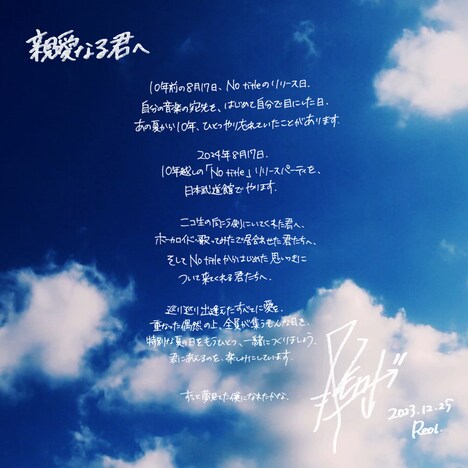 親愛なる君へ
10年前の8月17日、No titleのリリース日。
自分の音楽の宛先を、はじめて自分で目にした日。
あの夏から10年、ひとつやり忘れていたことがあります。
2024年8月17日。
10年越しの「No title」リリースパーティを、
日本武道館でやります。
ニコ生の向こう側にいてくれた君へ、
ボーカロイドや歌ってみたで居合わせた君たちへ、
そしてNo titleからはじめた思いつきに
ついて来てくれる君たちへ。
巡り巡り出逢えたすべてに愛を。
重なった偶然の上、全員が集うそんな日を、
特別な夏の日をもうひとつ、一緒につくりましょう。
君に会えるのを、楽しみにしています。
ずっと夢見てた僕になれたかな。
2023.12.25
Reol